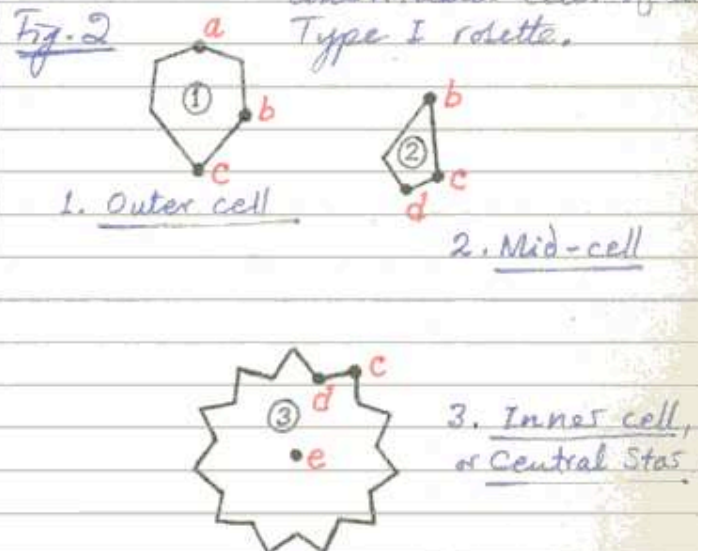 Fig. 2
Type I rosette.
a
①
b
c
1. Outer cell
b
②
c
d
2. Mid-cell
c
d
③
e
3. Inner cell,
or Central Star